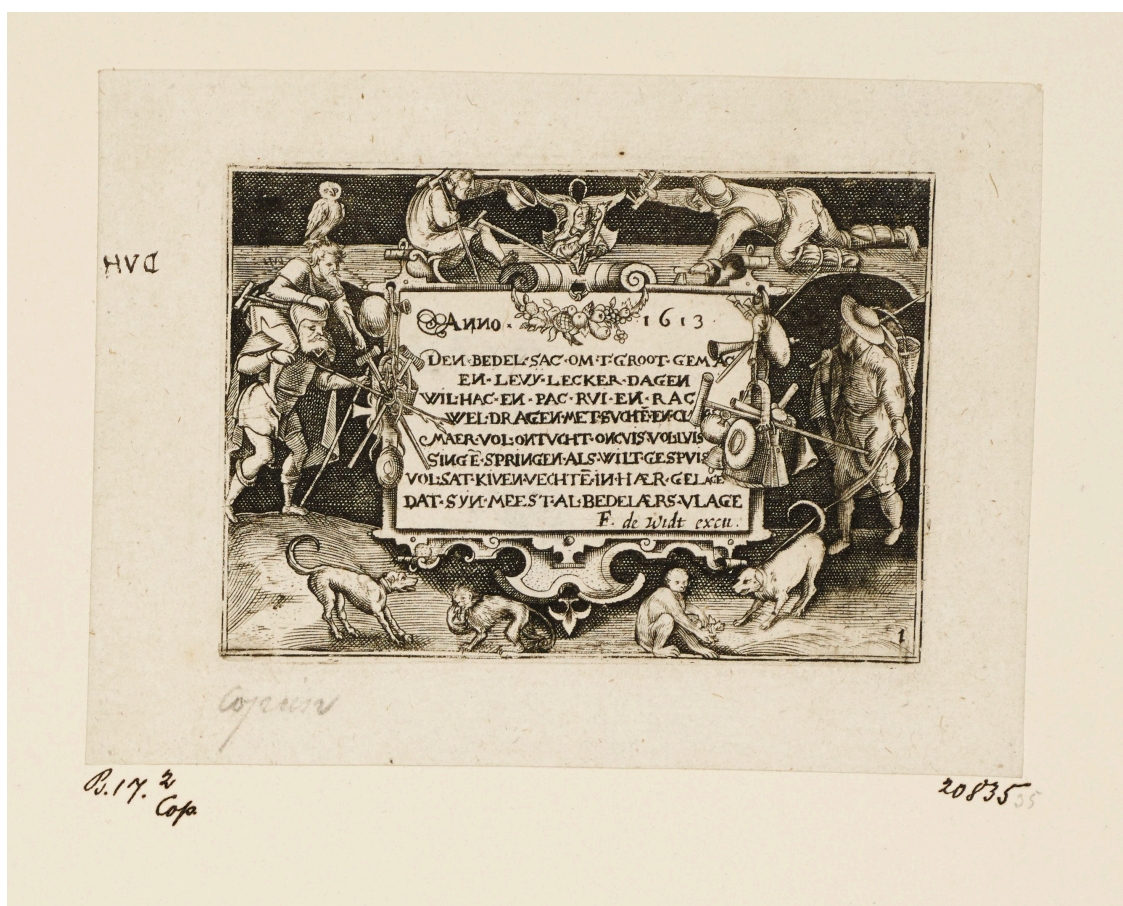 ANNO · 1613 ·
DEN · BEDEL · SAC · OM · T · GROOT · GEMAC
EN · LEVY · LECKER · DAGEN
WIL · HAC · EN · PAC · RVI · EN · RAC
WEL · DRAGEN · MET · SVCHTĒ
MAER · VOL · ONTVCHT · ONCVIS · VOL
SINGĒ · SPRINGEN · ALS · WILT · GESPVIS
VOL · SAT · KIVEN · VECHTĒ · IN · HÆR · GELAGE
DAT · SYN · MEEST · AL · BEDELÆRS · VLAGE
F. de Widt excu.
1
B. 17. 2
Cop.
20835
35